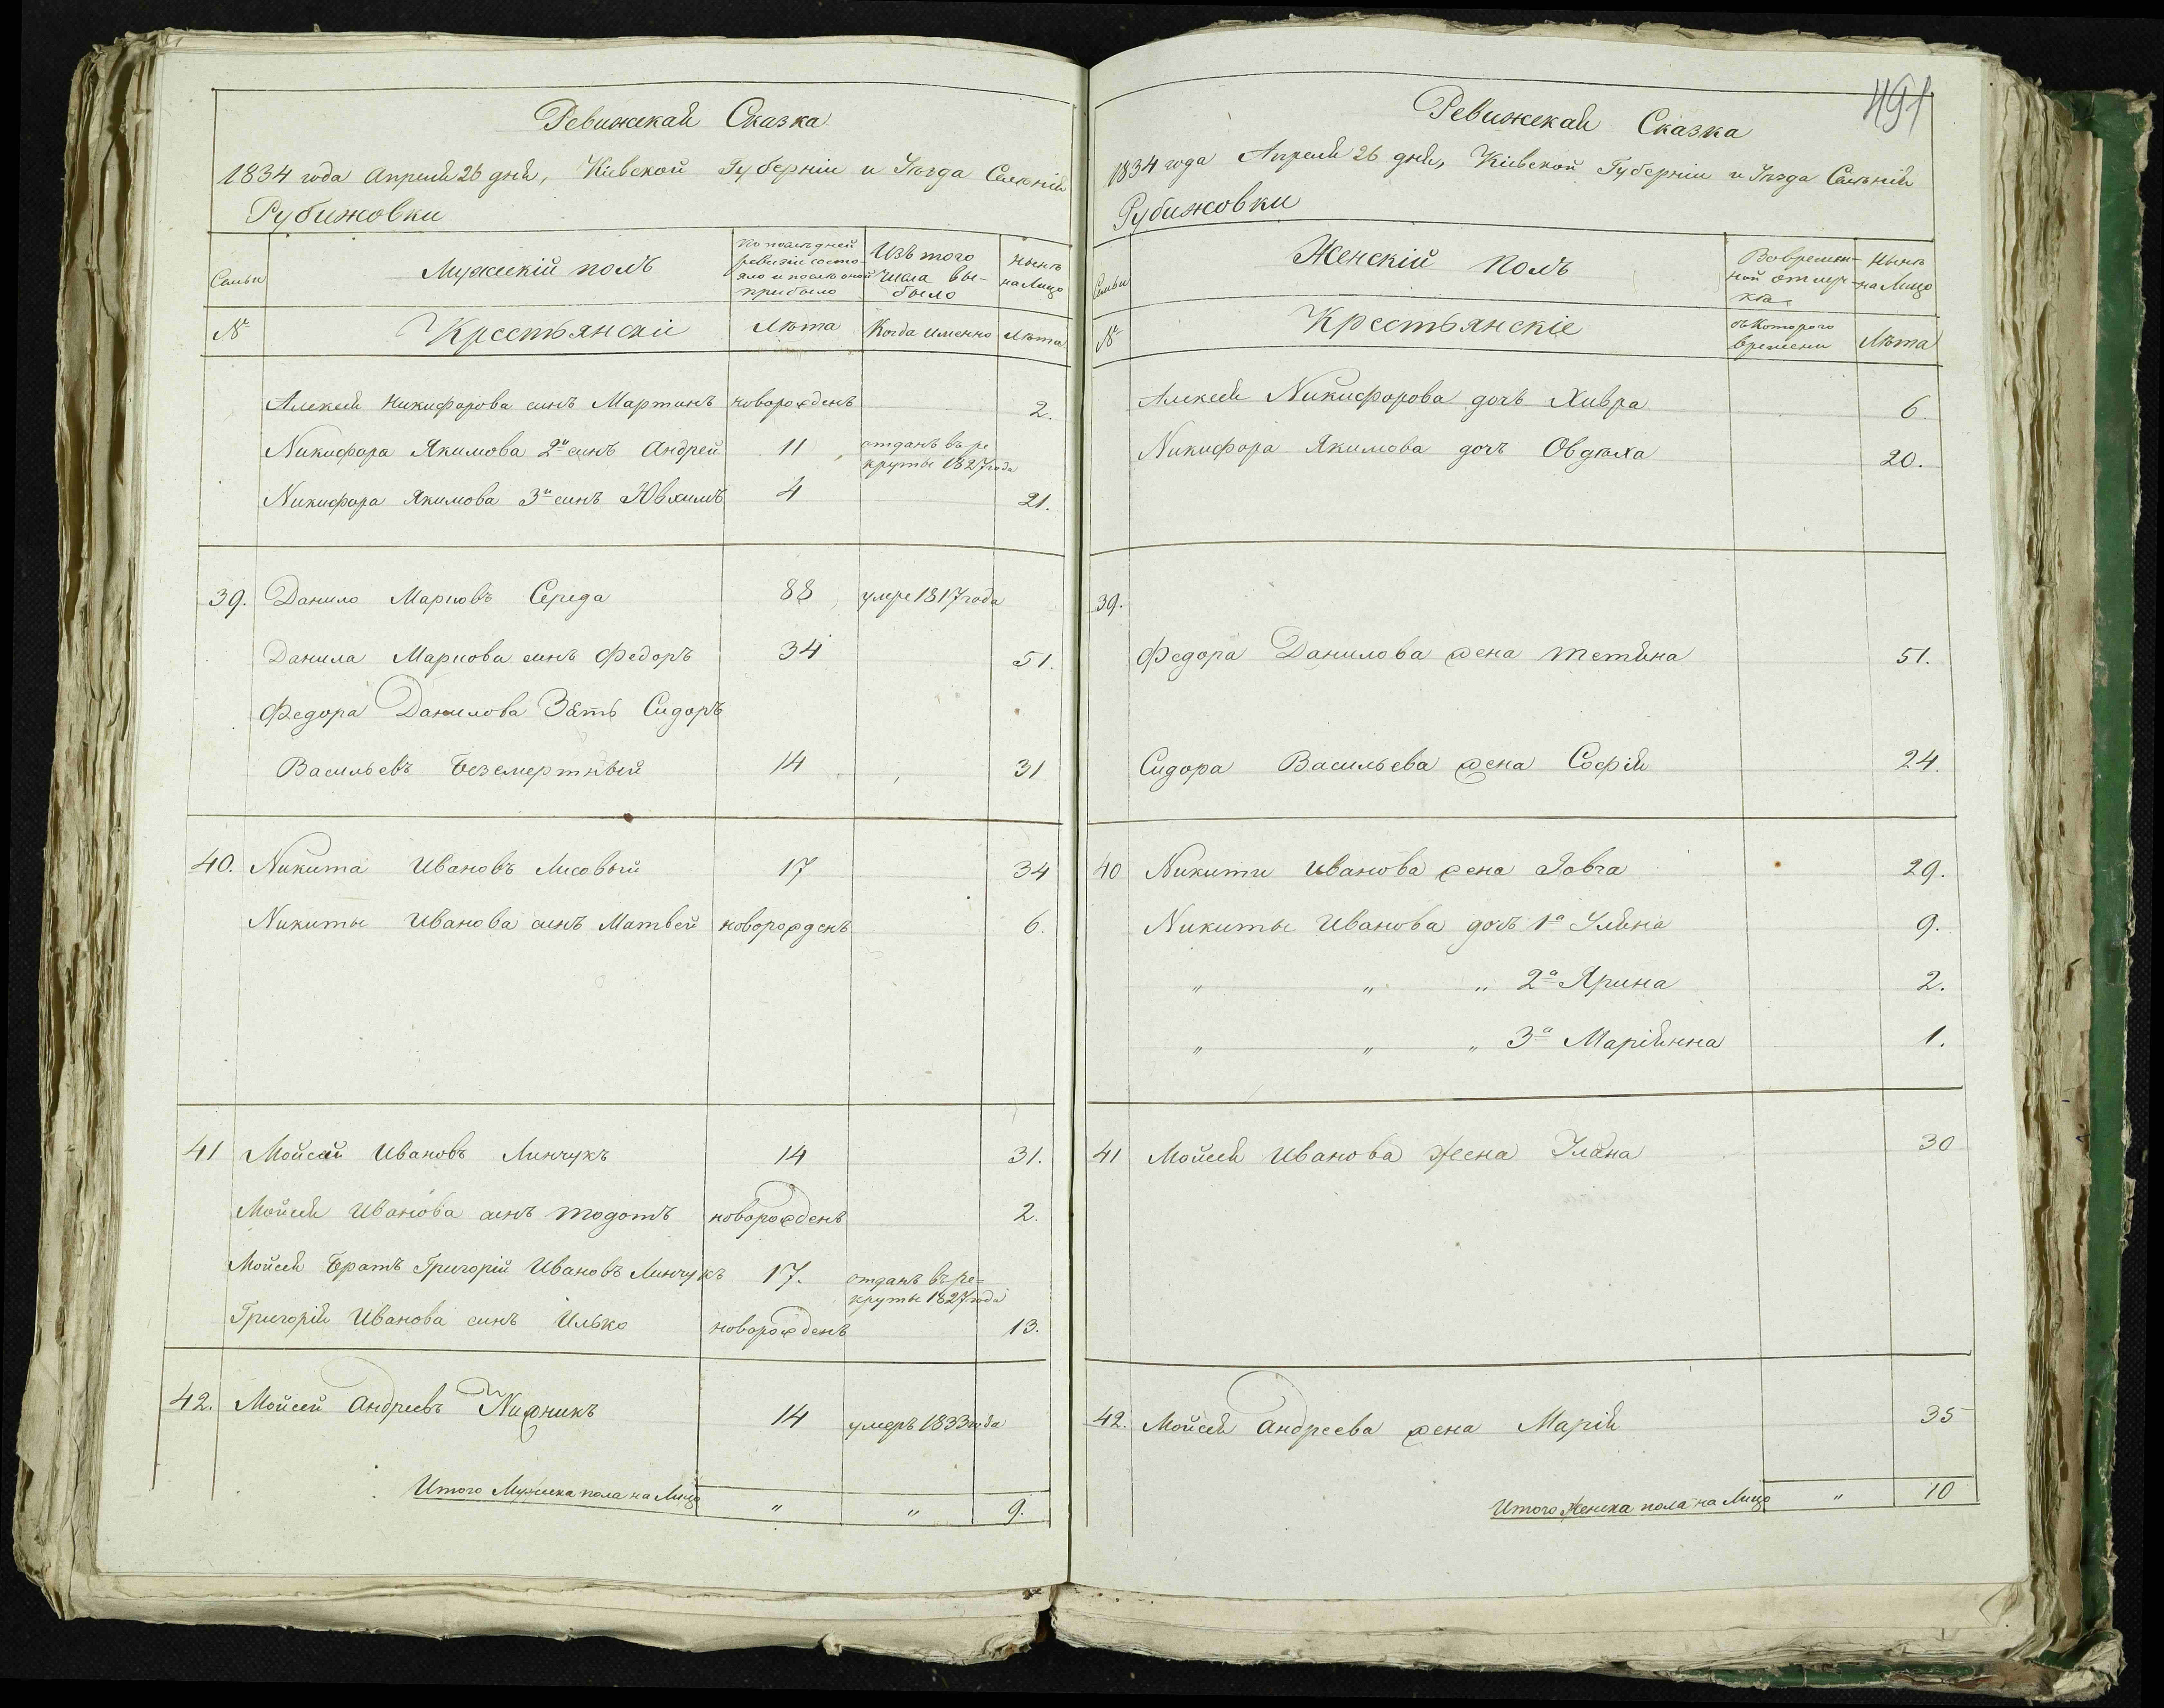 Ревижская Сказка
1834 года Апреля 26 дня, Кіевской Губерніи и Уѣзда Селенія
Рубижовки
Семьи
Мужескій полъ
По последней
ревизіи состо-
яло и после оной
прибыло
Изъ того
числа вы-
было
Нынѣ
на Лицо
№
Крестьянскіе
Лѣта
Когда именно
Лѣта
Алексея Никифорова синъ Мартинъ новорожденъ 2.
Никифора Якимова 2й синъ Андрей 11 отданъ въ ре
круты 1827 года
Никифора Якимова 3й синъ Ювхимъ 4 21.
39. Данило Марковъ Середа 88 умре 1817 года
Данила Маркова синъ Федоръ 34 51.
Федора Данилова Зять Сидоръ
Васильевъ Безсмертный 14 31
40. Никита Ивановъ Лисовый 17 34
Никиты Иванова синъ Матвей новорожденъ 6.
41 Мойсей Ивановъ Линчукъ 14 31.
Мойсея Иванова синъ Тодотъ новорожденъ 2.
Мойсея Братъ Григорій Ивановъ Линчукъ 17. отданъ въ ре-
круты 1827 года
Григорія Иванова синъ Илько новорожденъ 13.
42. Мойсей Андреевъ Нижникъ 14 умеръ 1833 года
Итого Мужеска пола на Лицо " " 9.
491
Ревижская Сказка
1834 года Апреля 26 дня, Кіевской Губерніи и Уѣзда Селѣнія
Рубижовки
Семьи
Женскій полъ
Вовремян-
ной отлуч-
кѣ
Нынѣ
на Лицо
№
Крестьянскіе
съ Которого
времени
Лѣта
Алексея Никифорова дочъ Хивра 6.
Никифора Якимова дочъ Овдюха 20.
39.
Федора Данилова жена Тетяна 51.
Сидора Васильева жена Софія 24.
40 Никити Иванова жена Явга 29.
Никиты Иванова дочъ 1я Уляна 9.
" " " 2я Ярина 2.
" " " 3я Маріянна 1.
41 Мойсея Иванова жена Уляна 30
42. Мойсея Андреева жена Марія 35
Итого Женска пола на Лицо " 10